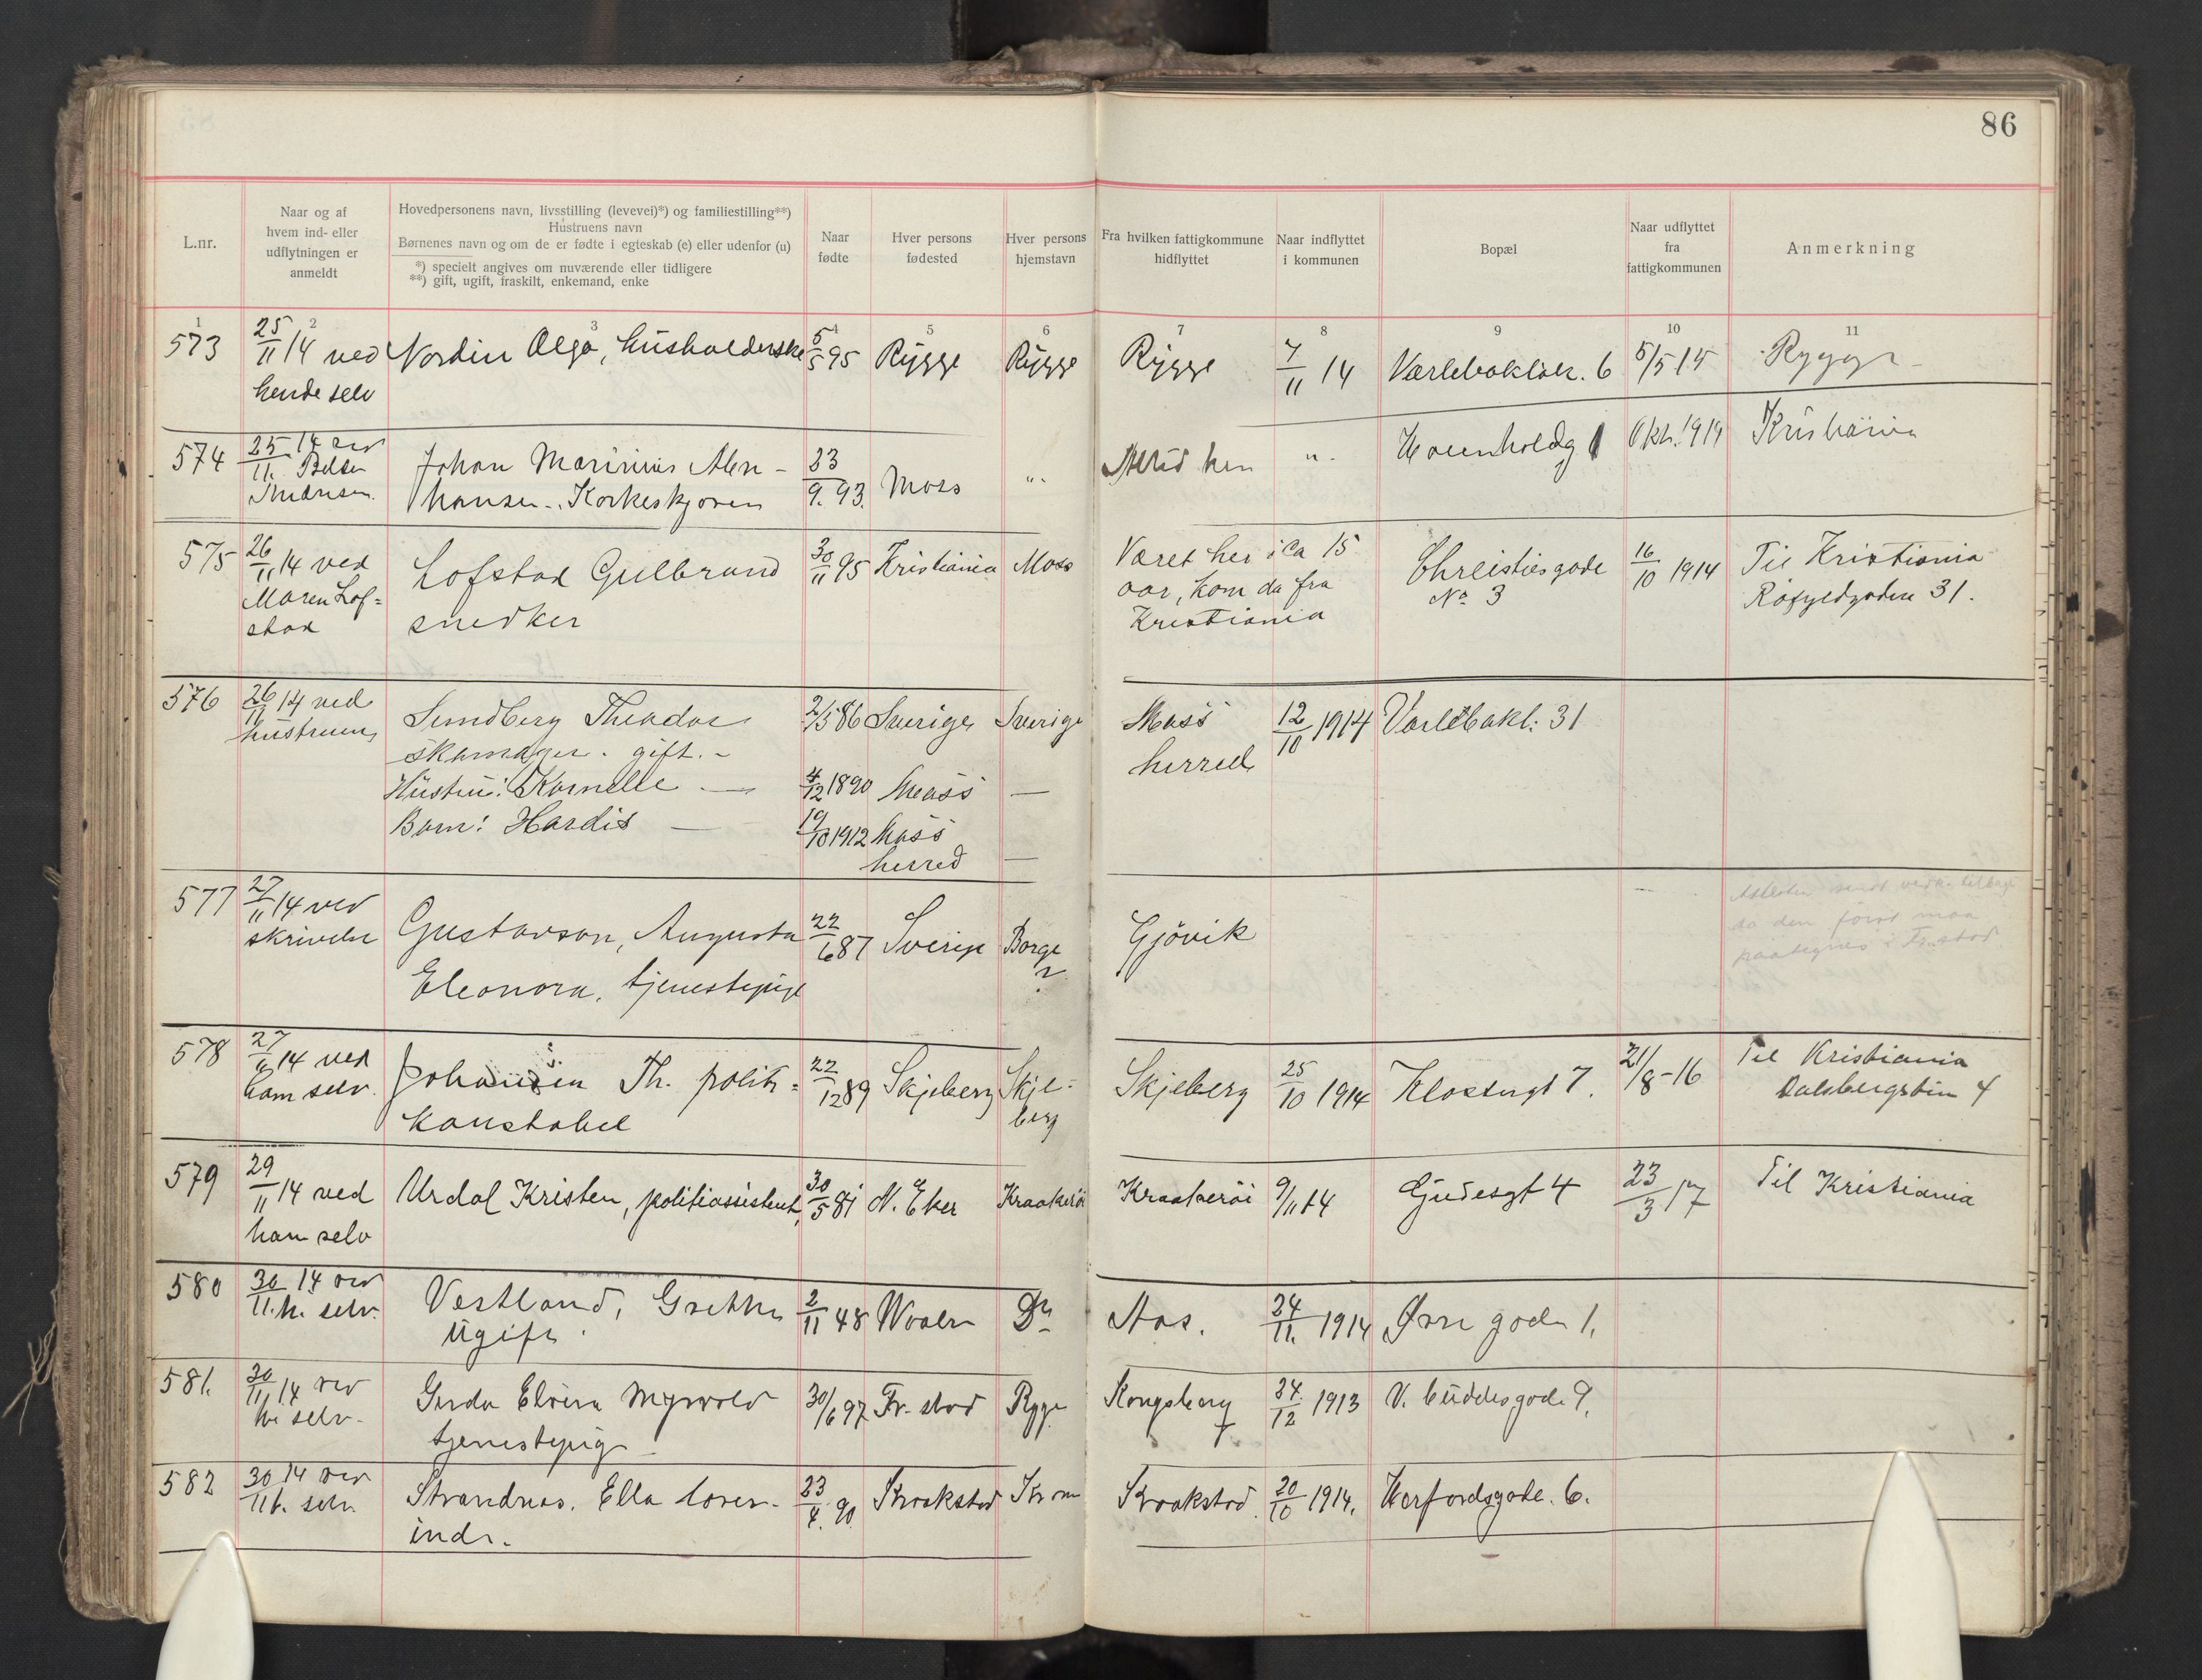 86
L.nr.
Naar og af
hvem ind- eller
udflytningen er
anmeldt
Hovedpersonens navn, livsstilling (levevei)*) og familiestilling**)
Hustruens navn
Børnenes navn og om de er fødte i egteskab (e) eller udenfor (u)
*) specielt angives om nuværende eller tidligere
**) gift, ugift, fraskilt, enkemand, enke
Naar
fødte
Hver persons
fødested
Hver persons
hjemstavn
Fra hvilken fattigkommune
hidflyttet
Naar indflyttet
i kommunen
Bopæl
Naar udflyttet
fra
fattigkommunen
Anmerkning
1 2 3 4 5 6 7 8 9 10 11
573 25/11 14 ved Nordin Olga, husholderske 5/5 95 Rygge Rygge Rygge 7/11 14 Værlebakken. 6 5/5 15 Rygge
hende selv
574 25/11 14 ved Johan Marinius 23/9. 93. Moss " Altid her " 1 Okt. 1919 Kristiania
hansen
575 26/11 14 ved Lofstad Gulbrand 30/11 95 Kristiania Moss Været her i ca 15 Chreistiesgade 16/10 1914 Til Kristiania
Maren Lof= snedker aar, kom da fra No 3 31.
stad Kristiania
576 26/11 14 ved Sundberg Theodor 2/5 86 Sverige Sverige Moss 12/10 1914 Værlebakk: 31
hustruen skomager. gift. - herred
Hustru: Kornelie — 4/12 1890 Moss —
Barn: Hardis — 19/10 1912 Moss
herred —
577 27/11 14 ved Gustavson, Augusta 22/6 87 Sverige Borge Gjövik
skrivelse Eleonora, tjenestepige ?
den først maa
578 27/11 14 ved Johansen Th. politi= 22/12 89 Skjeberg Skje= Skjeberg 25/10 1914 Klostergt 7. 21/8-16 Til Kristiania
ham selv. konstabel berg Dalsbergstien 4
579 29/11 14 ved Urdal Kristen, politiassistent, 30/5 81 N. Eker Kraakerøi Kraakerøi 9/11 14 Gudesgt 4 23/3 17 Til Kristiania
ham selv
580 30/11 14 ved Vestland, Grethe 2/11 48 Vaaler Do Aas. 24/11. 1914 gade 1.
h. selv. Ugift.
581. 30/11 14 ved Gerda Elvira Myrvold 30/6 97 Fr.stad Rygge Kongsberg 24/12 1913 V. Buddesgade 9.
h. selv. tjenestepige
582 30/11 14 ved Strandnas. Ella 23/4. 90. Kraakstad Kraakstad. 20/10 1914. Herfordsgade. 6.
h. selv indr.